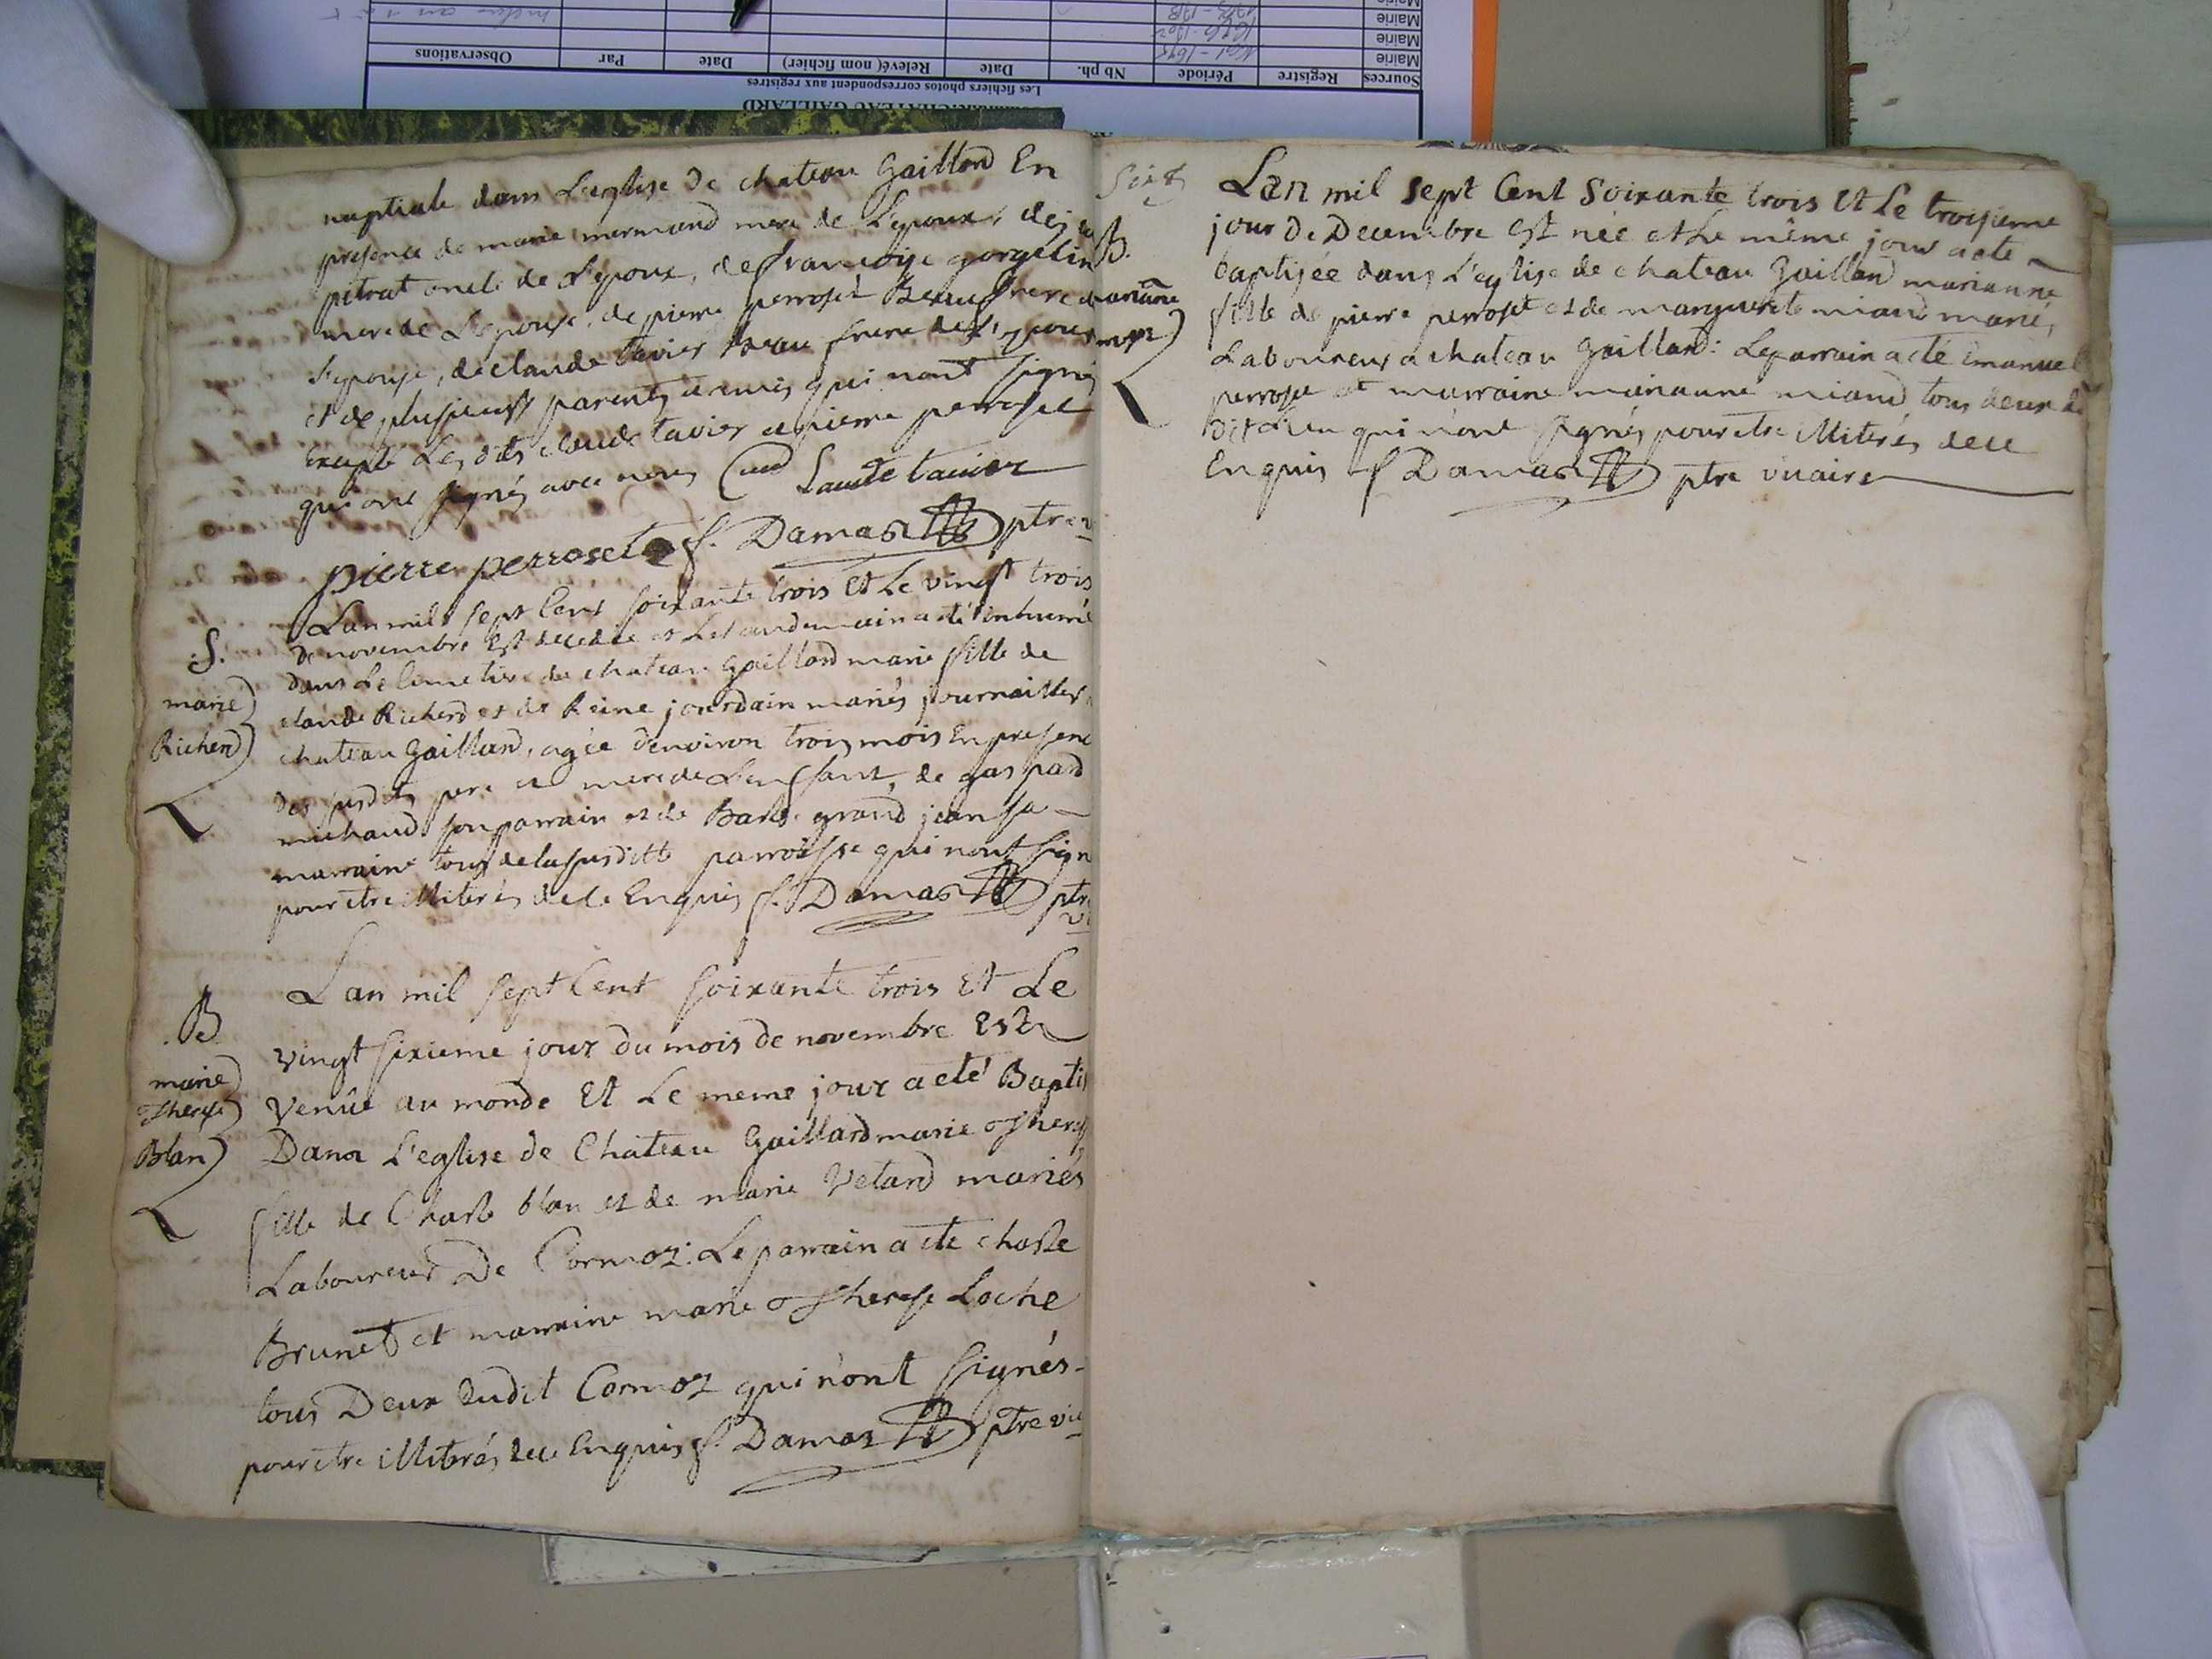 nuptiale dans L'eglise de chateau Gaillard En
presence de marie mermand mere de L'epoux, de
petrat oncle de L'epoux, de francoise gorgelin
mere de L'epouse, de pierre perroset Beaufrere
L'epouse, de claude tavier Beau frere de L'epoux
et de plusieurs parents et amis qui nont signés
Excepté Les dits claude tavier et pierre perroset
qui ont signés avec nous
Laude tavier
pierre perroset f. Damas ptre v
S.
marie
Richerd
Lan mil sept Cent soixante trois Et Le vingt trois
De novembre Est decedée et Le landemain a eté inhumé
dans Le Cimetiere de chateau Gaillard marie fille de
claude Richerd et de Reine jourdain mariés journailler
chateau Gaillard, agée d'environ trois mois En presenc
des susdits pere et mere de L'enffant, de gaspard
michaud son parrain et de Barbe grand jean sa
marraine tous de la susditte parroisse qui nont sign
pour etre illiterés de ce Enquis f. Damas ptre
vi
B
marie
Therese
Blan
Lan mil sept Cent soixante trois Et Le
vingt sixieme jour du mois de novembre Est
venüe au monde Et Le meme jour a eté Baptis
Dans L'eglise de Chateau Gaillard marie Theres
fille de Charle blan et de marie Vetard mariés
Laboureur De Cormoz: Le parrain a eté charle
Brunet et marraine marie Therese Loche
tous Deux dudit Cormoz qui n'ont signés
pour etre illiterés de ce Enquis f. Damas ptre vic
B.
marianne
Lan mil sept Cent soixante trois Et Le troisieme
jour de Decembre Est née et Le même jour a eté
baptisée dans L'eglise de chateau Gaillard marianne
fille de pierre perroset et de marguerite miand mariés,
Laboureur a chateau Gaillard: Le parrain a eté Emanuel
perroset et marraine marianne miand tous deux du
Dit Lieu qui n'ont signés pour etre illiterés de ce
Enquis f Damas ptre vicaire
Les fichiers photos correspondent aux registres
Sources Registre Période Nb ph. Date Relevé (nom fichier) Date Par Observations
Mairie
Mairie
Mairie